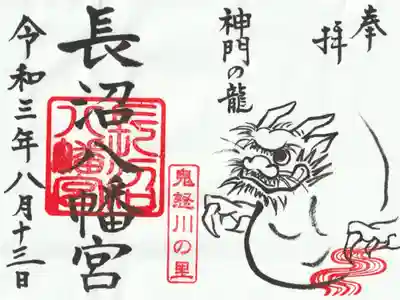 奉拝
神門の龍
長沼八幡宮
長沼八幡宮
鬼怒川の里
令和三年八月十三日